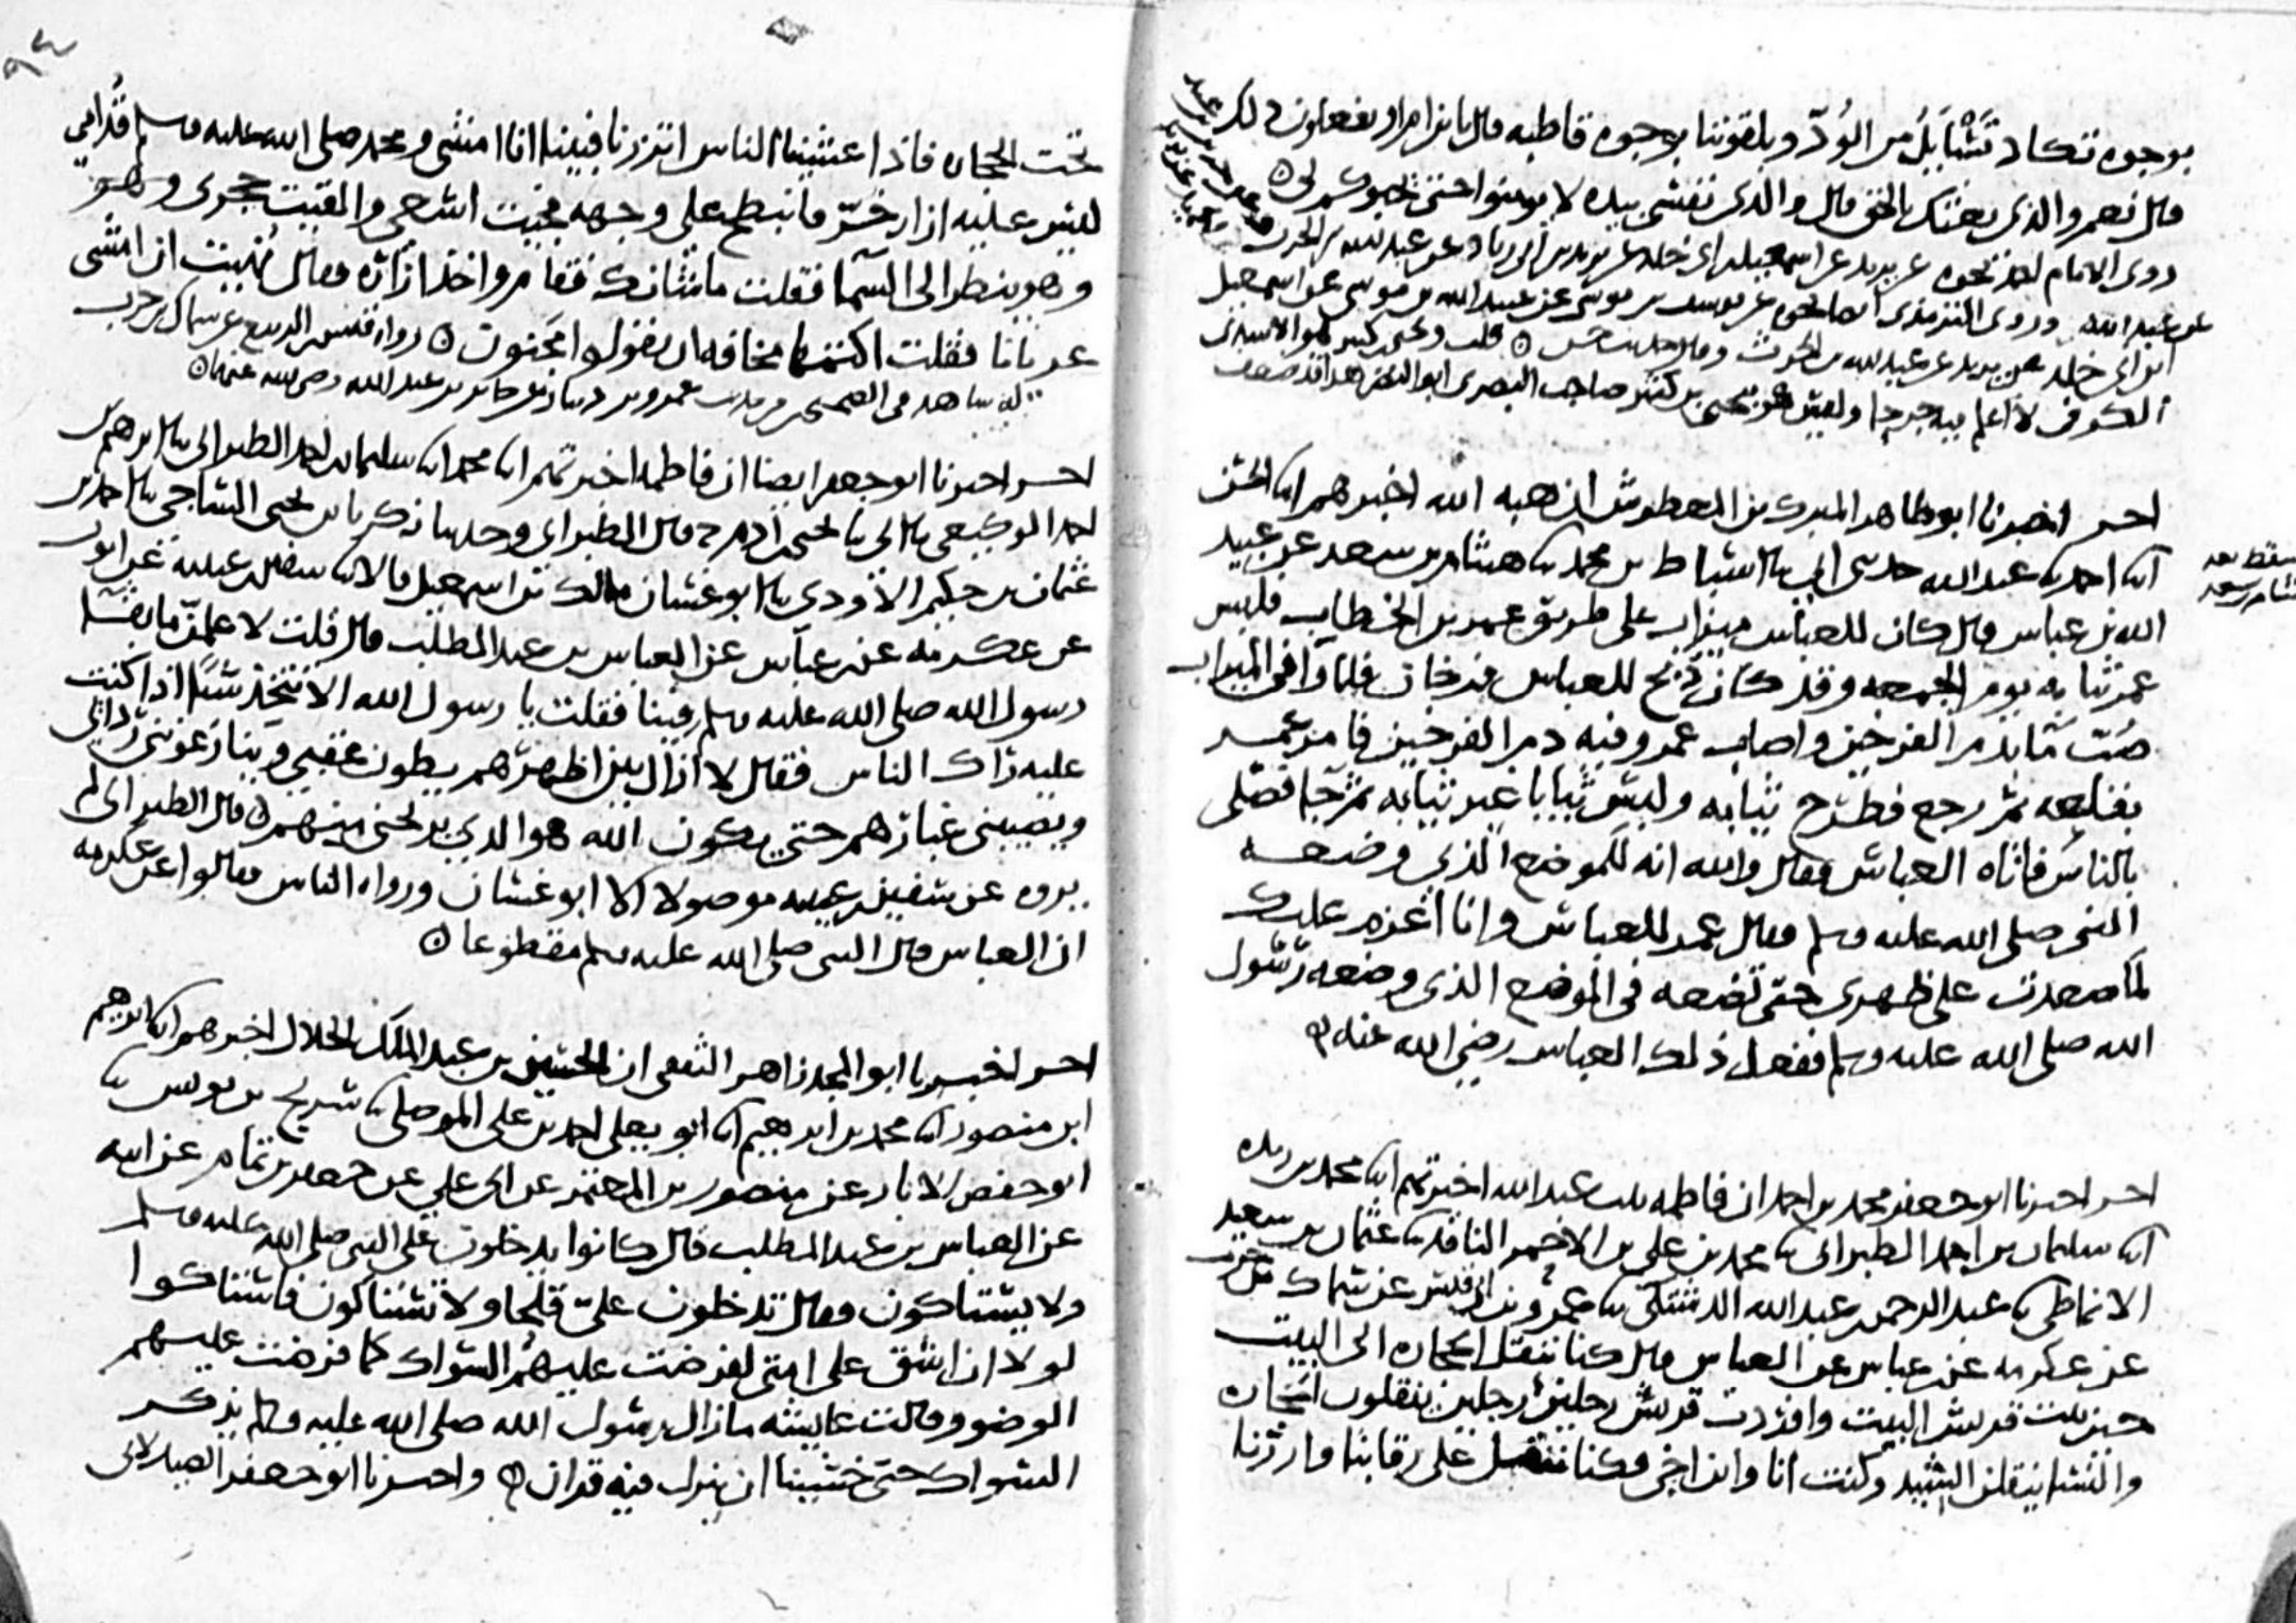 بوجوه تكاد تسايل من الود ويلقوننا بوجوه قاطبه قال يا نزام او يفعلون ذلك
قال نعم والذي بعثك بالحق قال والذي نفسي بيده لا يومنوا حتى يحبوكم لي ه
روى الامام احمد نحوه عن يزيد عن اسمعيل بن ابي خلد عن يزيد بن ابي زياد عن عبد الله بن الحرث
عن عبد الله وروى الترمذي عن يوسف بن موسى عن عبيد الله بن موسى عن اسمعيل
ابن ابي خلد عن يزيد عن عبد الله بن الحرث وقال حديث حسن ه قلت ويحيى بن كثير هو الاسيدي
الكوفي لا اعلم فيه جرحا وليس هو يحيى بن كثير صاحب البصري ابو النضر هذاك ضعيف
احر اخبرنا ابو طاهر المبرك بن المعطوش ان هبه الله اخبرهم ابنا الحسن
ابنا احمد بنا عبد الله حدثني ابي بنا اسباط بن محمد بنا هشام بن سعد عن عبيد
سقط بعد
هشام بن سعد
الله بن عباس قال كان للعباس ميزاب على طريق عمر بن الخطاب فلبس
عمر ثيابه يوم الجمعه وقد كان ذبح للعباس فرخان فلما وافى الميزاب
صب ما بدم الفرخين واصاب عمر وفيه دم الفرخين فامر عمر
بقلعه ثم رجع فطرح ثيابه ولبس ثيابا غير ثيابه ثم جا فصلى
بالناس فاتاه العباس فقال والله انه للموضع الذي وضعه
النبي صلى الله عليه وسلم فقال عمر للعباس وانا اعزم عليك
لما صعدت على ظهري حتى تضعه في الموضع الذي وضعه رسول
الله صلى الله عليه وسلم ففعل ذلك العباس رضي الله عنه ه
احر اخبرنا ابو جعفر محمد بن احمد ان فاطمه بنت عبد الله اخبرتهم ابنا محمد بن ريذه
ابنا سليمان بن احمد الطبراني بنا محمد بن علي بن الاحمر الناقد بنا عثمان بن سعيد
الانماطي بنا عبد الرحمن بن عبد الله الدشتكي بنا عمرو بن ابي قيس عن سماك بن حرب
عن عكرمه عن ابن عباس عن العباس قال كنا ننقل الحجاره الى البيت
حين بنت قريش البيت وافردت قريش رجلين رجلين ينقلون الحجاره
والنسا ينقلن الشيد وكنت انا وابن اخي وكنا ننقل على رقابنا وازرنا
٩٤
تحت الحجاره فاذا غشينا الناس اتزرنا فبينا انا امشي ومحمد صلى الله عليه وسلم قدامي
ليس عليه ازار خر فانبطح على وجهه فجيت اسعى والقيت حجري وهو
وهو ينظر الى السما فقلت ما شانك فقام واخذ ازاره وقال نهيت ان امشي
عريانا فقلت اكتمها مخافه ان يقولوا مجنون ه رواه قيس بن الربيع عن سماك بن حرب
له شاهد في الصحيحين من حديث عمرو بن دينار عن جابر بن عبد الله رضي الله عنهما ه
احر اخبرنا ابو جعفر ايضا ان فاطمه اخبرتهم ابنا محمد ابنا سليمان بن احمد الطبراني بنا ابرهيم بن
احمد الوكيعي بنا ابي بنا يحيى بن ادم ح قال الطبراني وحدثنا زكريا بن يحيى الساجي بنا احمد بن
عثمان بن حكيم الاودي بنا ابو غسان مالك بن اسمعيل قالا بنا سفين بن عيينه عن ايوب
عن عكرمه عن ابن عباس عن العباس بن عبد المطلب قال قلت لا علمن ما بقا
رسول الله صلى الله عليه وسلم فينا فقلت يا رسول الله الا نتخذ شيا اذا كنت
عليه زاك الناس فقال لا ازال بين اظهرهم يطون عقبي وينازعونني ردائي
ويصيبني غبارهم حتى يكون الله هو الذي يريحني منهم ه قال الطبراني لم
يروه عن سفين بن عيينه موصولا الا ابو غسان ورواه الناس فقالوا عن عكرمه
ان العباس قال للنبي صلى الله عليه وسلم مقطوعا ه
احر اخبرنا ابو المجد زاهر الثقفي ان الحسين بن عبد الملك الخلال اخبرهم ابنا ابرهيم
ابن منصور ابنا محمد بن ابرهيم ابنا ابو يعلى احمد بن علي الموصلي بنا شريح بن يونس بنا
ابو حفص الابار عن منصور بن المعتمر عن ابي علي عن جعفر بن تمام عن ابيه
عن العباس بن عبد المطلب قال كانوا يدخلون على النبي صلى الله عليه وسلم
ولا يستاكون فقال تدخلون علي قلحا ولا تستاكون فاستاكوا
لولا ان اشق على امتي لفرضت عليهم السواك كما فرضت عليهم
الوضو وقالت عايشه ما زال رسول الله صلى الله عليه وسلم يذكر
السواك حتى خشينا ان ينزل فيه قران ه واخبرنا ابو جعفر الصيدلاني